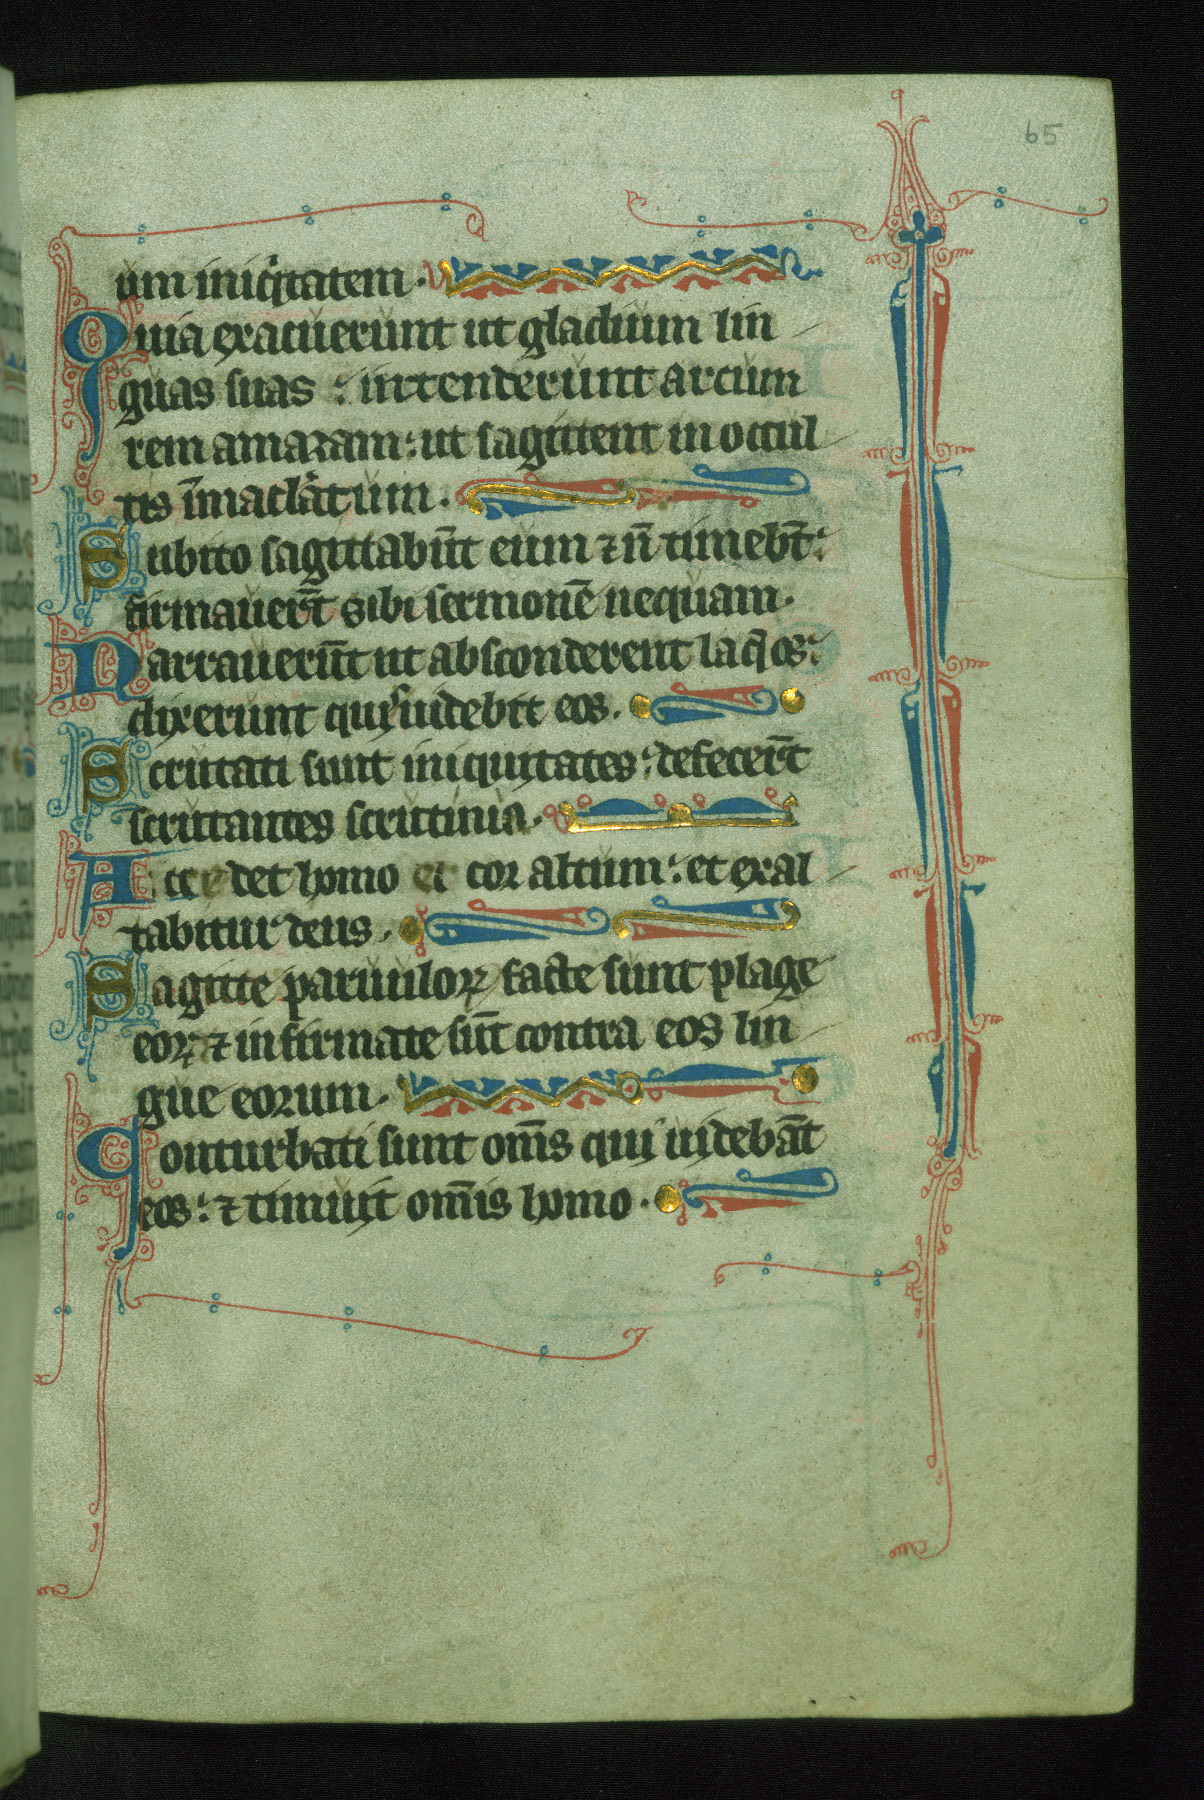 65
um iniqͥtatem.
Quia exacuerunt ut gladium lin
guas suas : intenderunt arcum
rem amaram : ut sagittent in occul
tis īmaclātum.
Subito sagittabūt eum ⁊ nō timebūt :
firmauerūt sibi sermonē nequam.
Narrauerūt ut absconderent laq̄os :
dixerunt quis uidebit eos.
Scrutati sunt iniquitates : defecerūt
scrutantes scrutinia.
Accedet homo et cor altum : et exal
tabitur deus.
Sagitte paruuloꝝ facte sunt plage
eoꝝ ⁊ infirmate sūt contra eos lin
gue eorum.
Conturbati sunt om̄s qui uidebāt
eos : ⁊ timuit om̄is homo.